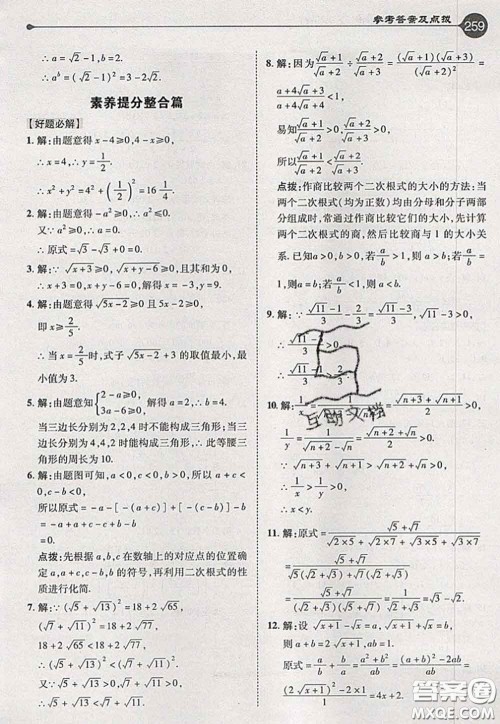 参考答案及点拨 259
∴a=√2-1,b=2.
∴a^b=(√2-1)²=3-2√2.
素养提分整合篇
【好题必解】
1. 解:由题意得x-4≥0,4-x≥0,
∴x=4,∴y=1/2.
∴x²+y²=4²+(1/2)²=16 1/4.
2. 解:由题意得-a²≥0,∴a²≤0.
又∵a²≥0,∴a=0.
∴原式=√3-√3+0=0.
3. 解:∵√(x+3)≥0,√(x+y-6)≥0,且其和为0,
∴x+3=0,x+y-6=0,解得x=-3,y=9.
4. 解:由题意得√(5x-2)≥0且5x-2≥0,
即x≥2/5.
∴当x=2/5时,式子√(5x-2)+3的取值最小,最
小值为3.
5. 解:由题意知{2-a≥0, 3a-6≥0,∴a=2,∴b=4.
当三边长分别为2,2,4时不能构成三角形;当三
边长分别为4,4,2时能构成三角形,∴此等腰三
角形的周长为10.
6. 解:由题图可知,a<0,c<b,a+b<0,所以a-c<0,
所以原式=-a-[-(a+b)]+[-(a-c)]=
-a+a+b-a+c=-a+b+c.
点拨:先根据a,b,c在数轴上的对应点的位置确
定a,b,c的符号,再利用二次根式的性
质进行化简.
7. 解:∵(√5+√13)²=18+2√65,
(√7+√11)²=18+2√77,
又2√65<2√77,
∴(√5+√13)²<(√7+√11)².
∴√5+√13<√7+√11.
8. 解:因为(√a+1)/(√a+2)÷(√a+2)/(√a+3)=
(a+4√a+3)/(a+4√a+4)<1,
易知(√a+1)/(√a+2)>0,(√a+2)/(√a+3)>0,
所以(√a+1)/(√a+2)<(√a+2)/(√a+3).
点拨:作商比较两个二次根式的大小的方法:当
两个二次根式(均为正数)均由分母和分子两部
分组成时,常通过作商比较它们的大小,先计算
两个二次根式的商,然后比较商与1的大小关
系.已知a>0,b>0,若a/b>1,则a>b;若a/b=1,则
a=b;若a/b<1,则a<b.
9. 解:∵(√11-1)/3-2/3=(√11-3)/3,√11>√9=3,
∴√11-3>0,
∴(√11-3)/3>0,
∴(√11-1)/3>2/3.
10. 解:1/x=1/(√(n+3)-√(n+1))=(√(n+3)+√(n+1))/2,
1/y=1/(√(n+2)-√n)=(√(n+2)+√n)/2,
∵√(n+3)+√(n+1)>√(n+2)+√n>0,
∴1/x>1/y>0,
∴x<y.
11. 解:原式=(√5+√7)/(√(2×5)+√(2×7)+√(3×5)+√(3×7))=
(√5+√7)/(√2(√5+√7)+√3(√5+√7))=
(√5+√7)/((√5+√7)(√2+√3))=1/(√2+√3)=√3-√2.
12. 解:设2√x+1=a,2√x-1=b,
则a+b=4√x,ab=4x-1,a-b=2.
∴原式=a/b+b/a=(a²+b²)/ab=((a-b)²+2ab)/ab=
(2√x+1-2√x+1)²/(4x-1)+2=4x+2.
互助文档
答案圈
MXQE.COM